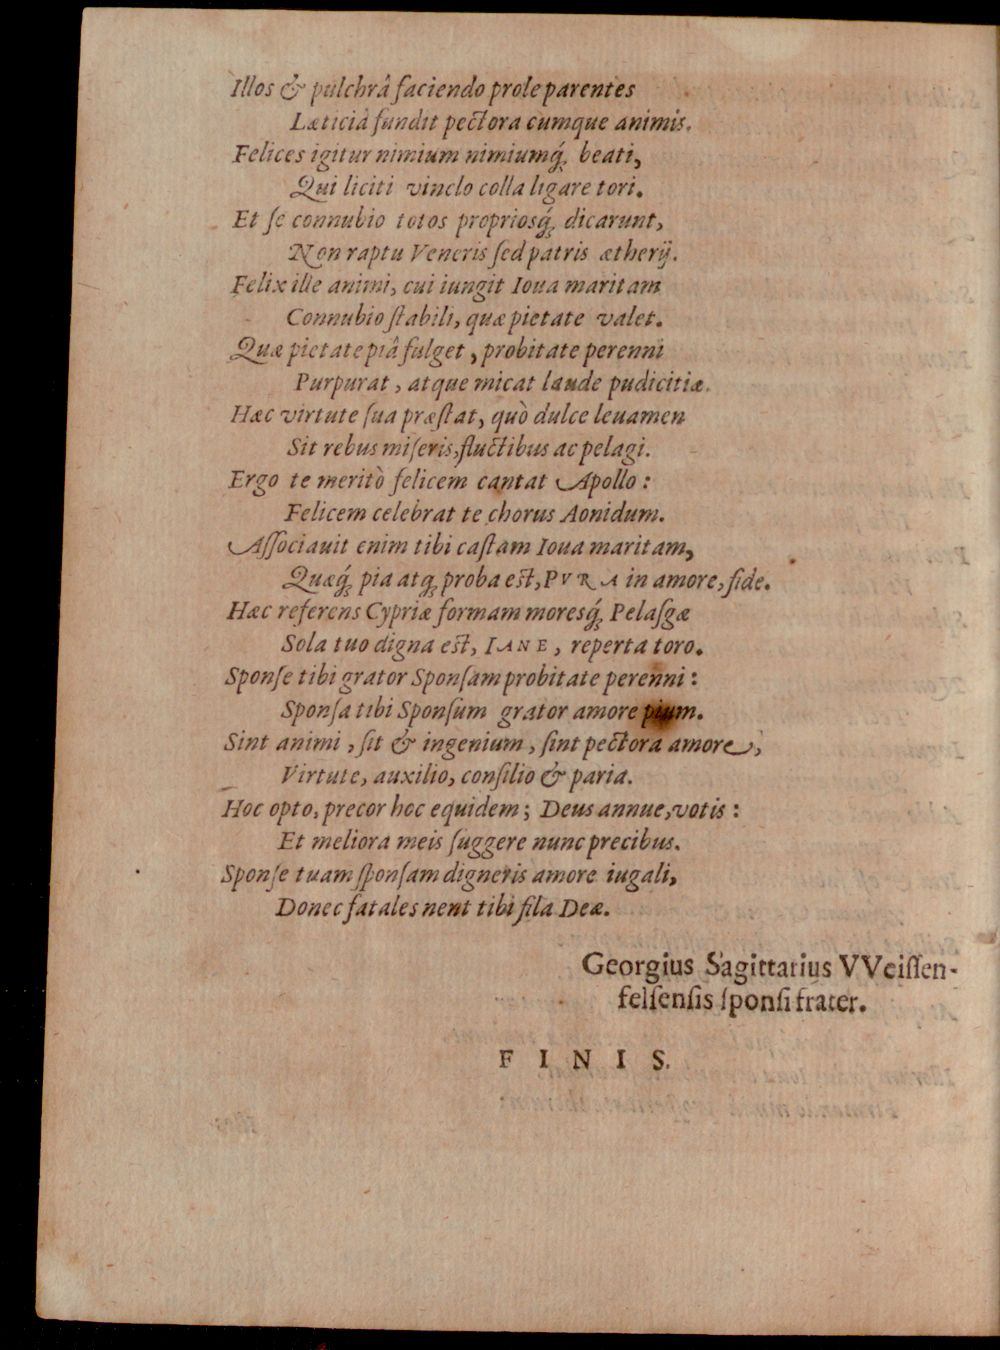 Illos & pulchrâ faciendo prole parentes
Læticiâ fundit pectora cumque animis.
Felices igitur nimium nimiumq́; beati,
Qui liciti vinclo colla ligare tori.
Et ſe connubio totos propriosq́; dicarunt,
Non raptu Veneris ſed patris ætherij.
Felix ille animi, cui iungit Ioua maritam
Connubio ſtabili, quæ pietate valet.
Quæ pietate piâ fulget, probitate perenni
Purpurat, atque micat laude pudicitiæ.
Hæc virtute ſua præſtat, quò dulce leuamen
Sit rebus miſeris, fluctibus ac pelagi.
Ergo te meritò felicem cantat Apollo:
Felicem celebrat te chorus Aonidum.
Aſſociauit enim tibi caſtam Ioua maritam,
Quæq́; pia atq; proba est, PVRA in amore, fide.
Hæc referens Cypriæ formam moresq́; Pelaſgæ
Sola tuo digna est, IANE, reperta toro.
Sponſe tibi grator Sponſam probitate perenni:
Sponſa tibi Sponſum grator amore pium.
Sint animi, ſit & ingenium, ſint pectora amore,
Virtute, auxilio, conſilio & paria.
Hoc opto, precor hoc equidem; Deus annue, votis:
Et meliora meis ſuggere nunc precibus.
Sponſe tuam ſponſam digneris amore iugali,
Donec fatales nent tibi fila Deæ.
Georgius Sagittarius VVeiſſen-
felſenſis ſponſi frater.
FINIS.